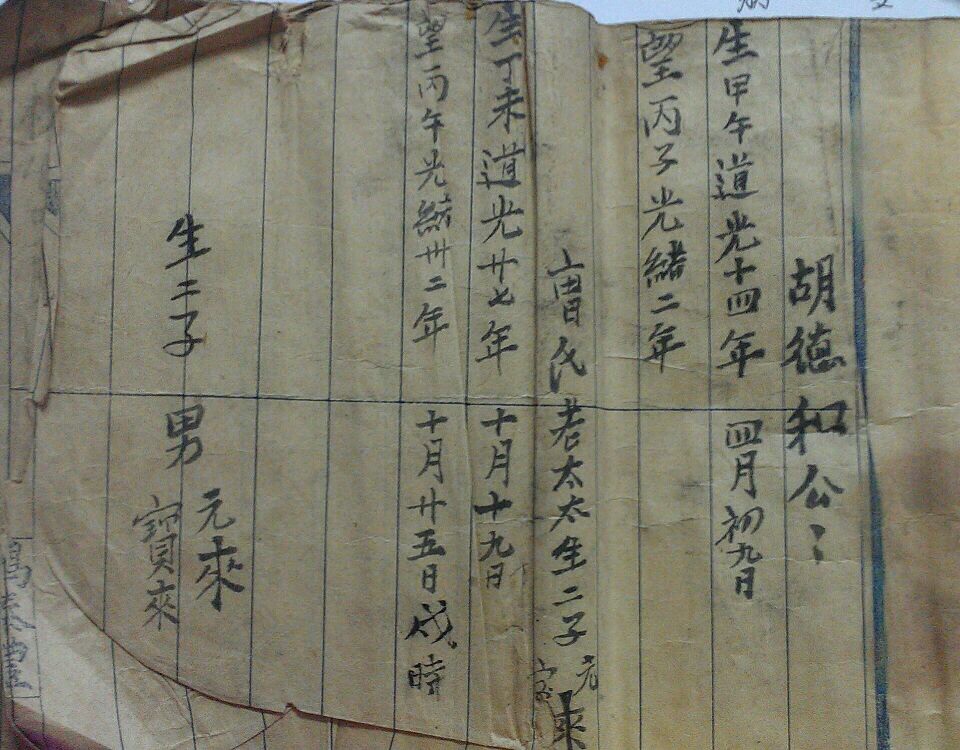 胡德和公々
生甲午道光十四年 四月初九日
望丙子光緒二年
氏老太太生二子 元 宝 來
生丁未道光廿七年 十月十九日
望丙午光緒卅二年 十月廿五日戌時
生二子 男 元來
寶來